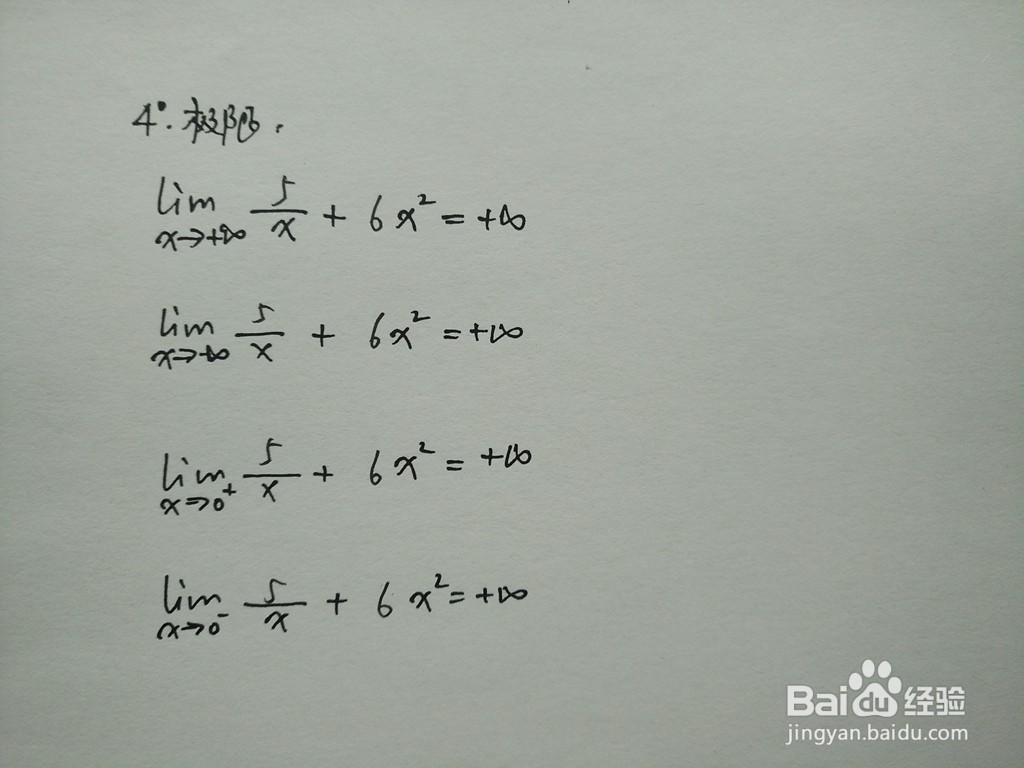 4°. 极限.
lim x→+∞ 5/x + 6x² = +∞
lim x→-∞ 5/x + 6x² = +∞
lim x→0⁺ 5/x + 6x² = +∞
lim x→0⁻ 5/x + 6x² = +∞
Baidu经验
jingyan.baidu.com